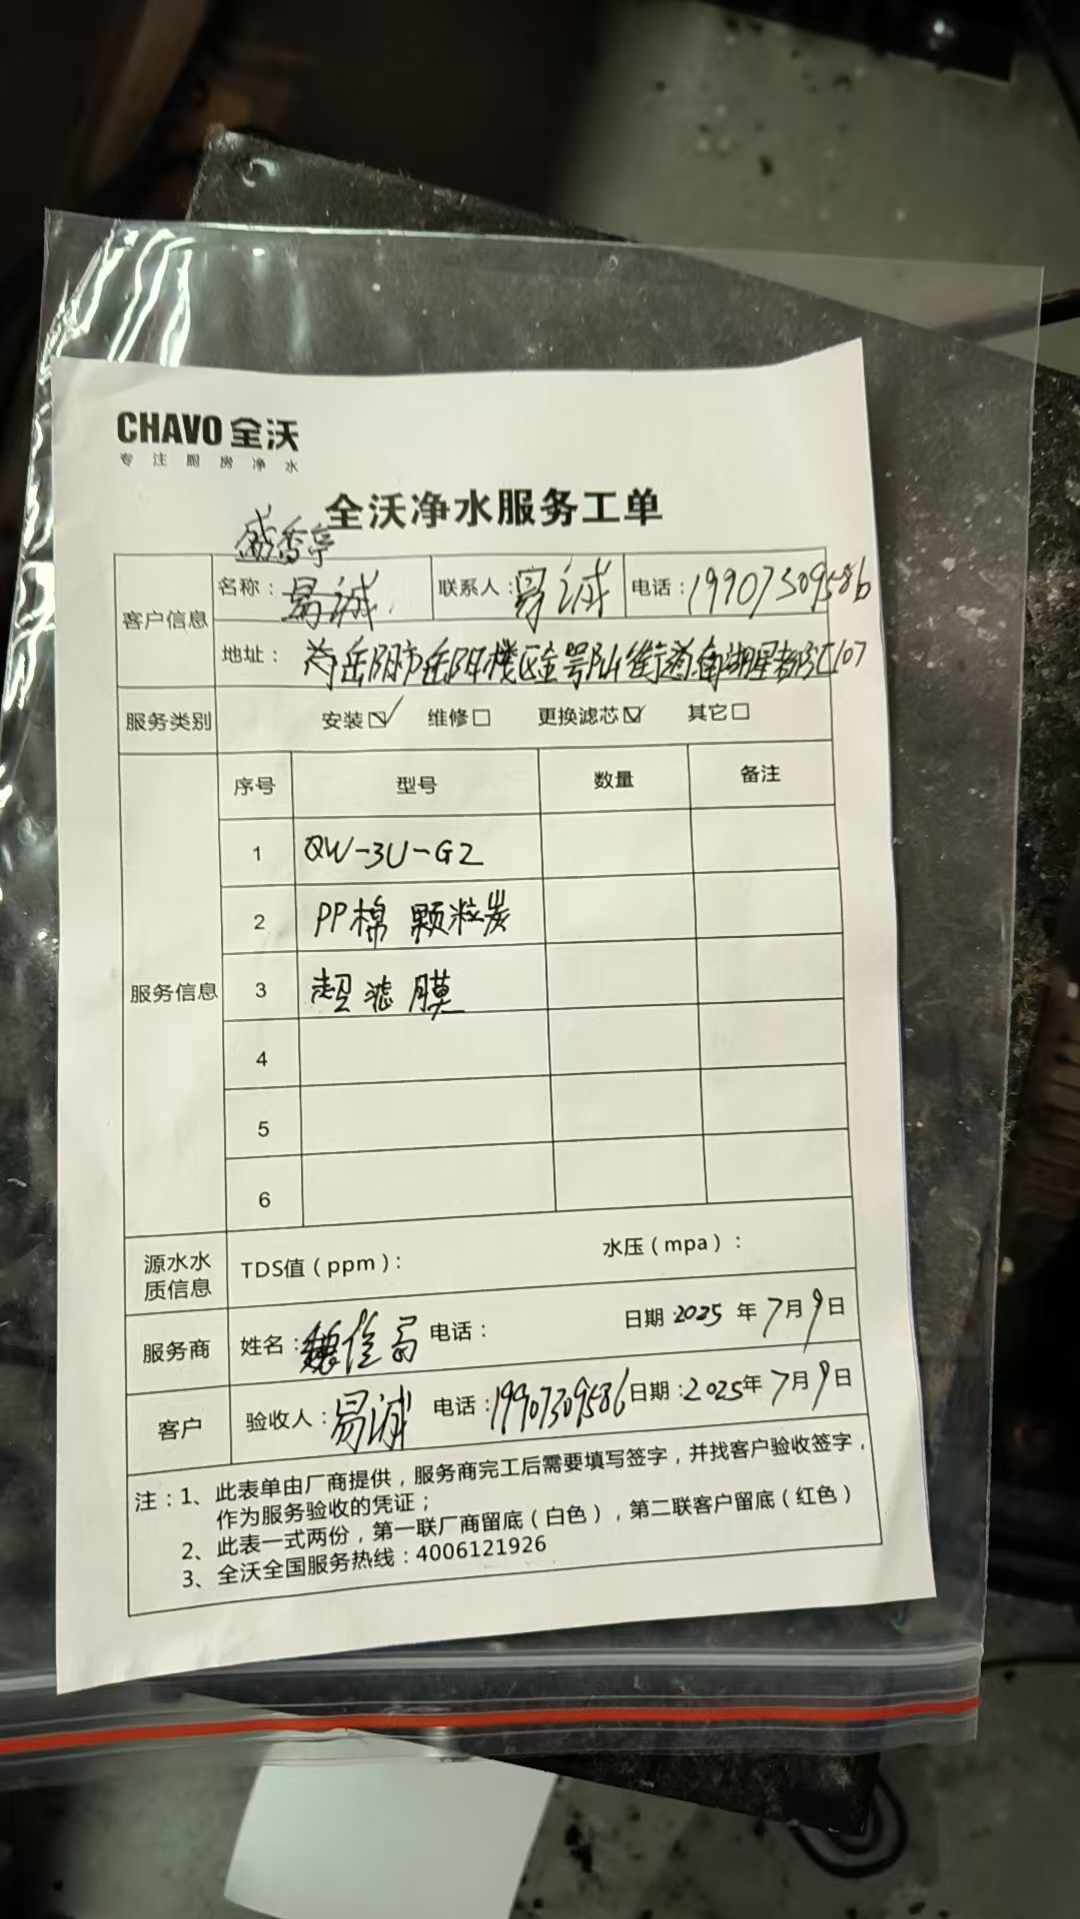 CHAVO 全沃
专注厨房净水
全沃净水服务工单
盛香亭
客户信息 名称：易诚 联系人：易诚 电话：19907309586
地址：岳阳市岳阳楼区金鹗山街道南湖星都汇107
服务类别 安装☑ 维修□ 更换滤芯☑ 其它□
序号 型号 数量 备注
1 QW-3U-G2
2 PP棉 颗粒炭
服务信息 3 超滤膜
4
5
6
源水水质信息 TDS值（ppm）： 水压（mpa）：
服务商 姓名： 电话： 日期：2025年7月9日
客户 验收人：易诚 电话：19907309586 日期：2025年7月9日
注：1、此表单由厂商提供，服务商完工后需要填写签字，并找客户验收签字，
作为服务验收的凭证；
2、此表一式两份，第一联厂商留底（白色），第二联客户留底（红色）
3、全沃全国服务热线：4006121926